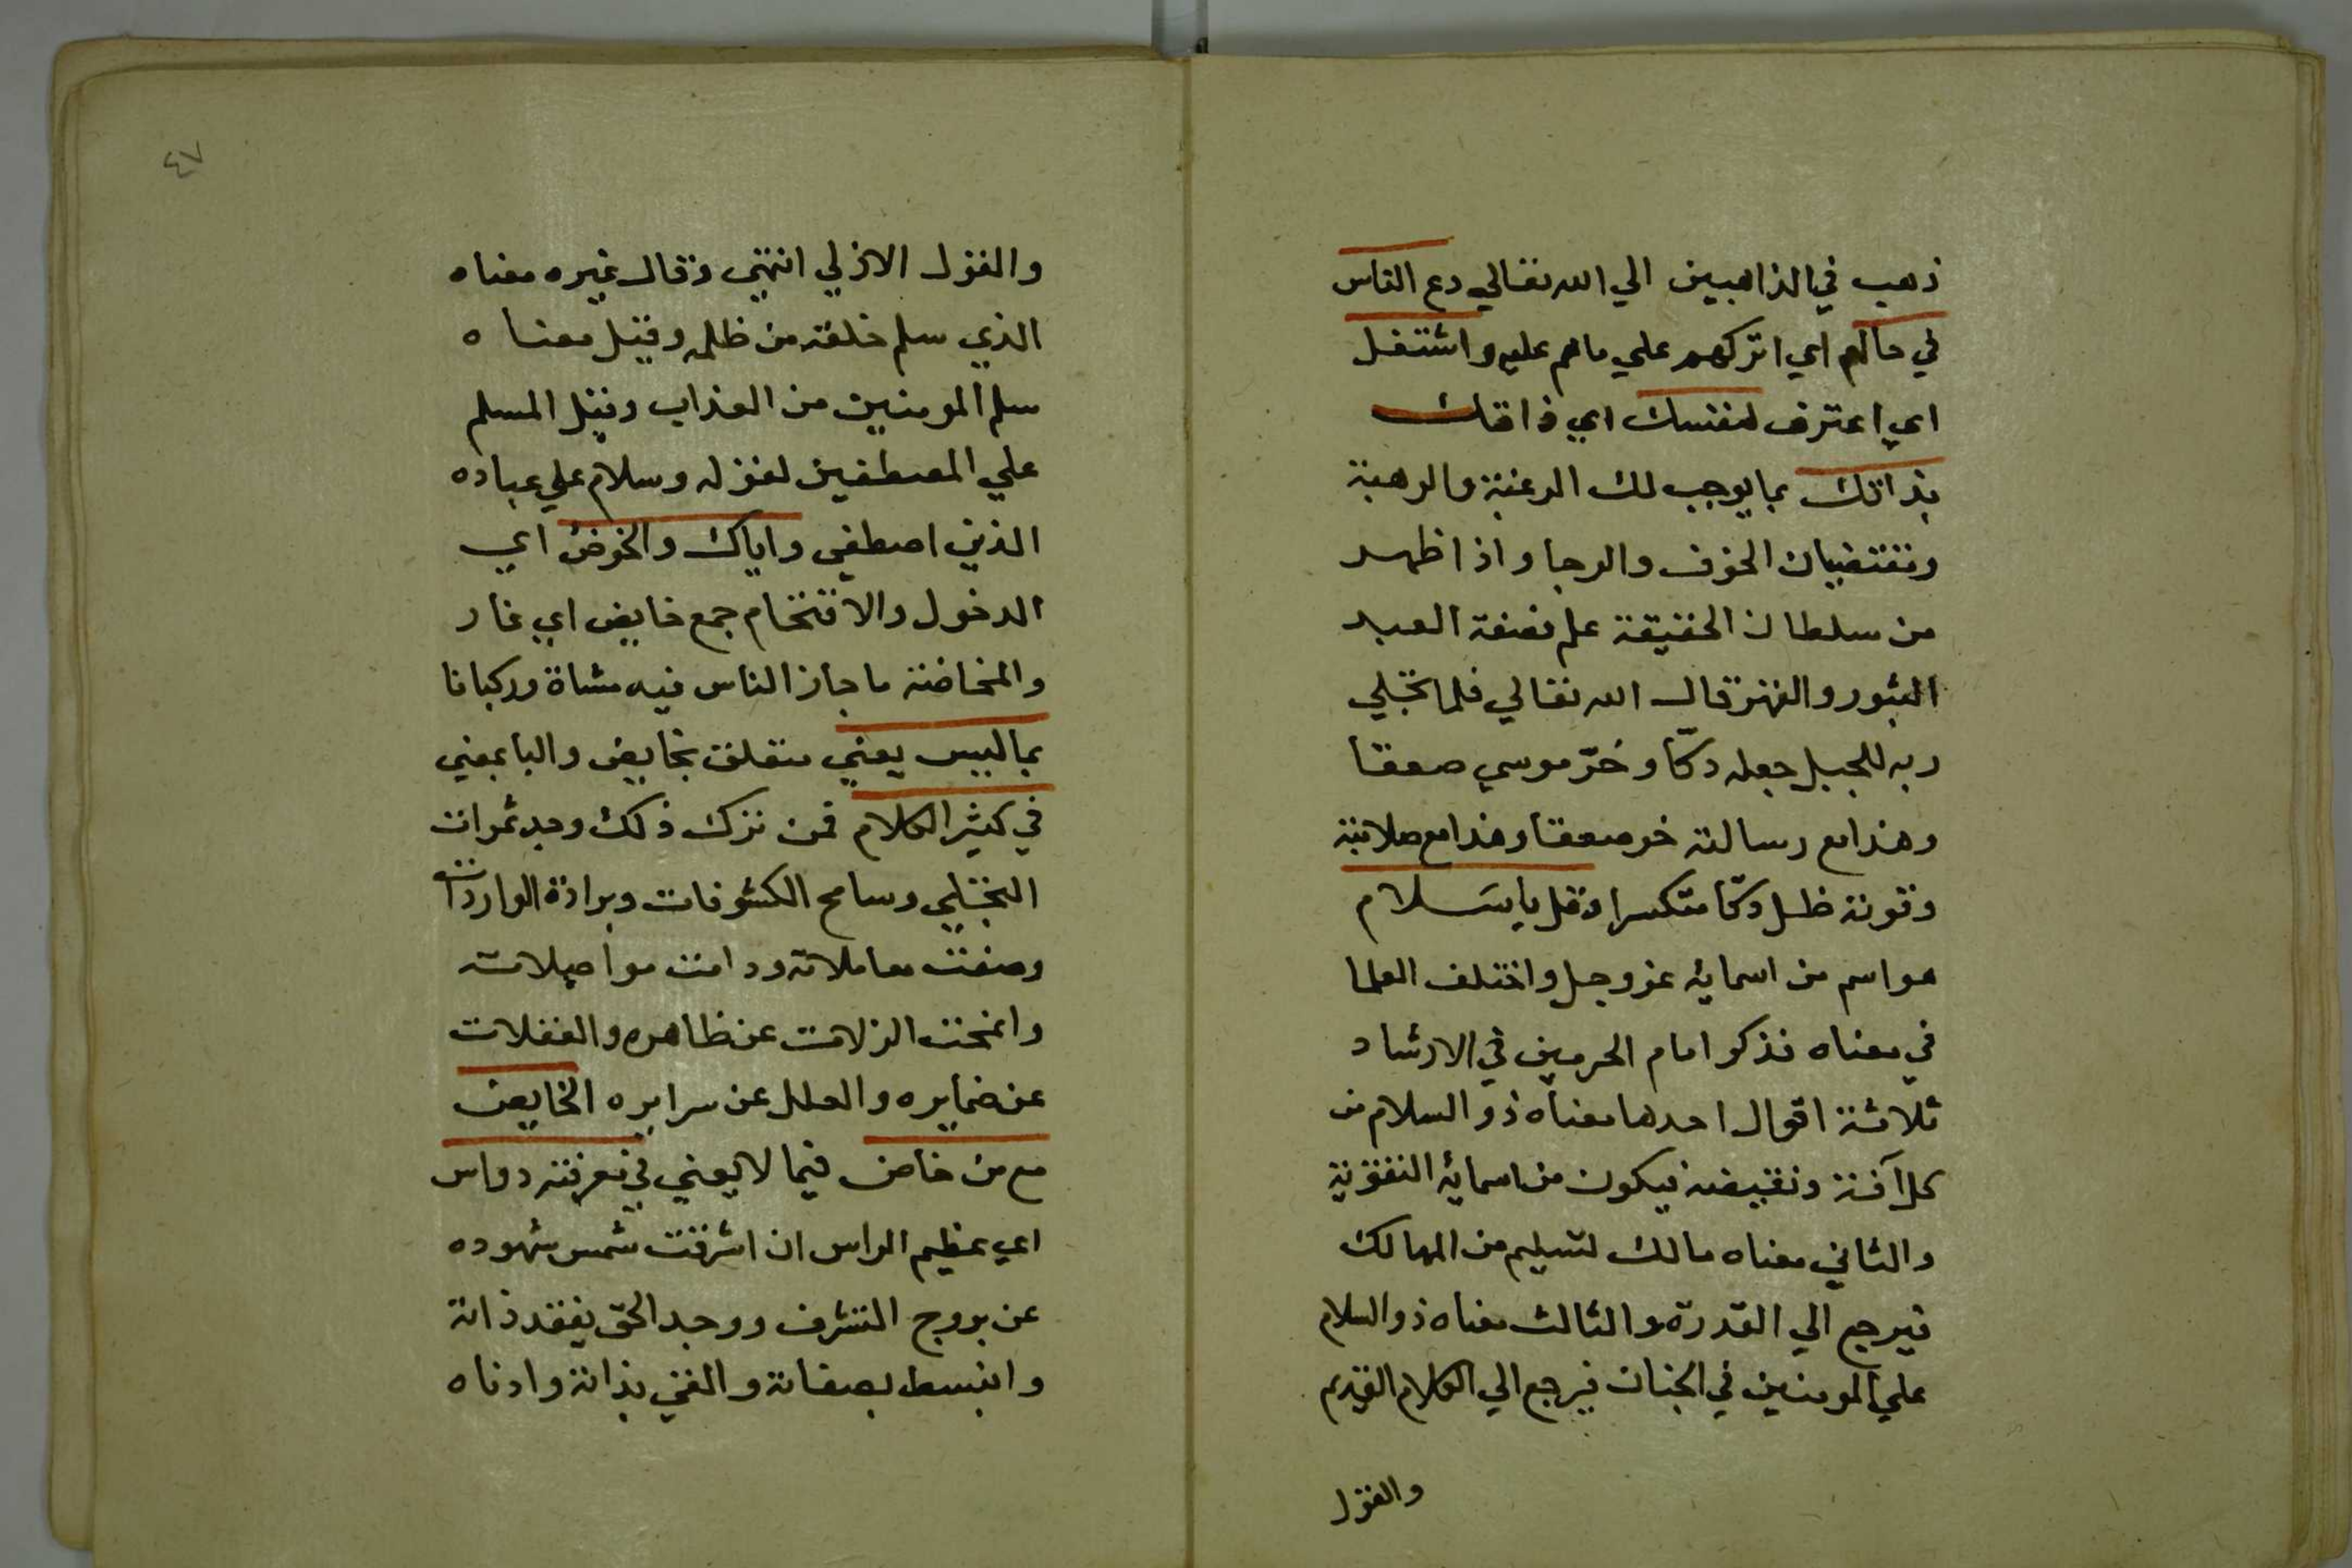 ذهب في الذاهبين الي الله تعالي دع الناس
في حالهم اي اتركهم علي ماهم عليه واشتغل
اي اعترف لنفسك اي ذاتك
بذاتك بما يوجب لك الرغبة والرهبة
وتقتضيان الخوف والرجا واذا ظهر
من سلطان الحقيقة علم صفة العبد
الثبور والقهر قال الله تعالي فلما تجلي
ربه للجبل جعله دكّا وخرّ موسي صعقا
وهذا مع رسالته خر صعقا وهذا مع صلابته
وقوته ظل دكّا متكسرا وقل يا سَلام
هو اسم من اسمايه عز وجل واختلف العلما
في معناه فذكر امام الحرمين في الارشاد
ثلاثة اقوال احدها معناه ذو السلام من
كل آفة ونقيضه فيكون من اسمائه
والثاني معناه مالك لتسليم من المهالك
فيرجع الي القدرة والثالث معناه ذو السلام
علي المومنين في الجنان فيرجع الي الكلام القديم
والقول
٤٧
والقول الازلي انتهي وقال غيره معناه
الذي سلم خلقه من ظلمه وقيل معناه
سلم المومنين من العذاب وقيل المسلم
علي المصطفين لقوله وسلام علي عباده
الذين اصطفي واياك والخوض اي
الدخول والاقتحام جمع خايض اي غار
والمخاضة ما جاز الناس فيه مشاة وركبانا
بما ليس يعني متعلق بخايض والبا بمعني
في كثير الكلام فمن ترك ذلك وجد ثمرات
التجلي وسامح الكشوفات وبرادة الواردات
وصفت معاملاته ودامت مواصلاته
وانمحت الزلات عن ظاهره والغفلات
عن ضمايره والعلل عن سرايره الخايض
مع من خاض فيما لا يعني في دواس
اي عظيم الراس ان اشرقت شمس شهوده
عن بروج التشرف ووجد الحق بفقد ذاته
وانبسط بصفاته والغني بذاته وادناه